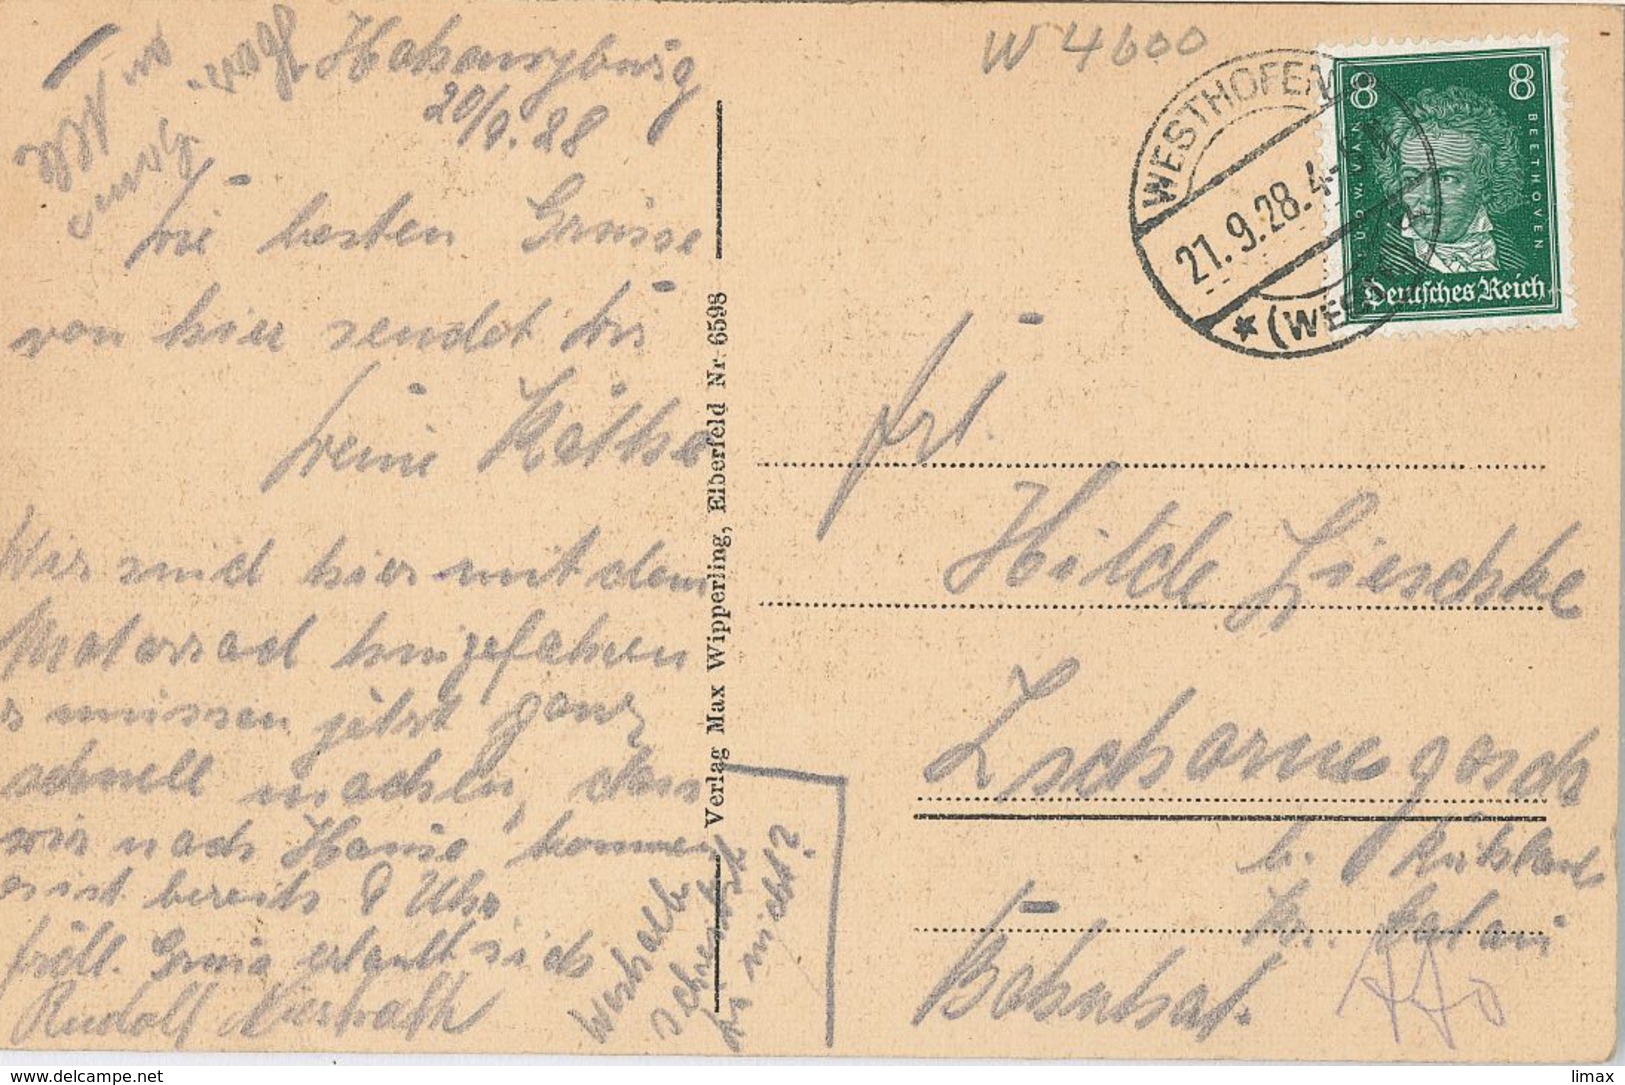 Hohensyburg
20/9. 28
Die besten Grüsse
von hier sendet Dir
Deine Käthe
Wir sind hier mit dem
Motorrad hingefahren
müssen jetzt ganz
schnell machen, dass
wir nach Hause kommen
es ist bereits 8 Uhr
frdl. Gruss erlaubt sich
Rudolf
Weshalb
schreibst
Du nicht?
Verlag Max Wipperling, Elberfeld Nr. 6598
W 4600
WESTHOFEN
21.9.28.4-5
★ (WESTF
8 8
BEETHOVEN
Deutsches Reich
Frl.
Hilde Lieschke
Zschornegosda
b. Ruhland
Kr. Calau
Bahnhof.
delcampe.net
limax